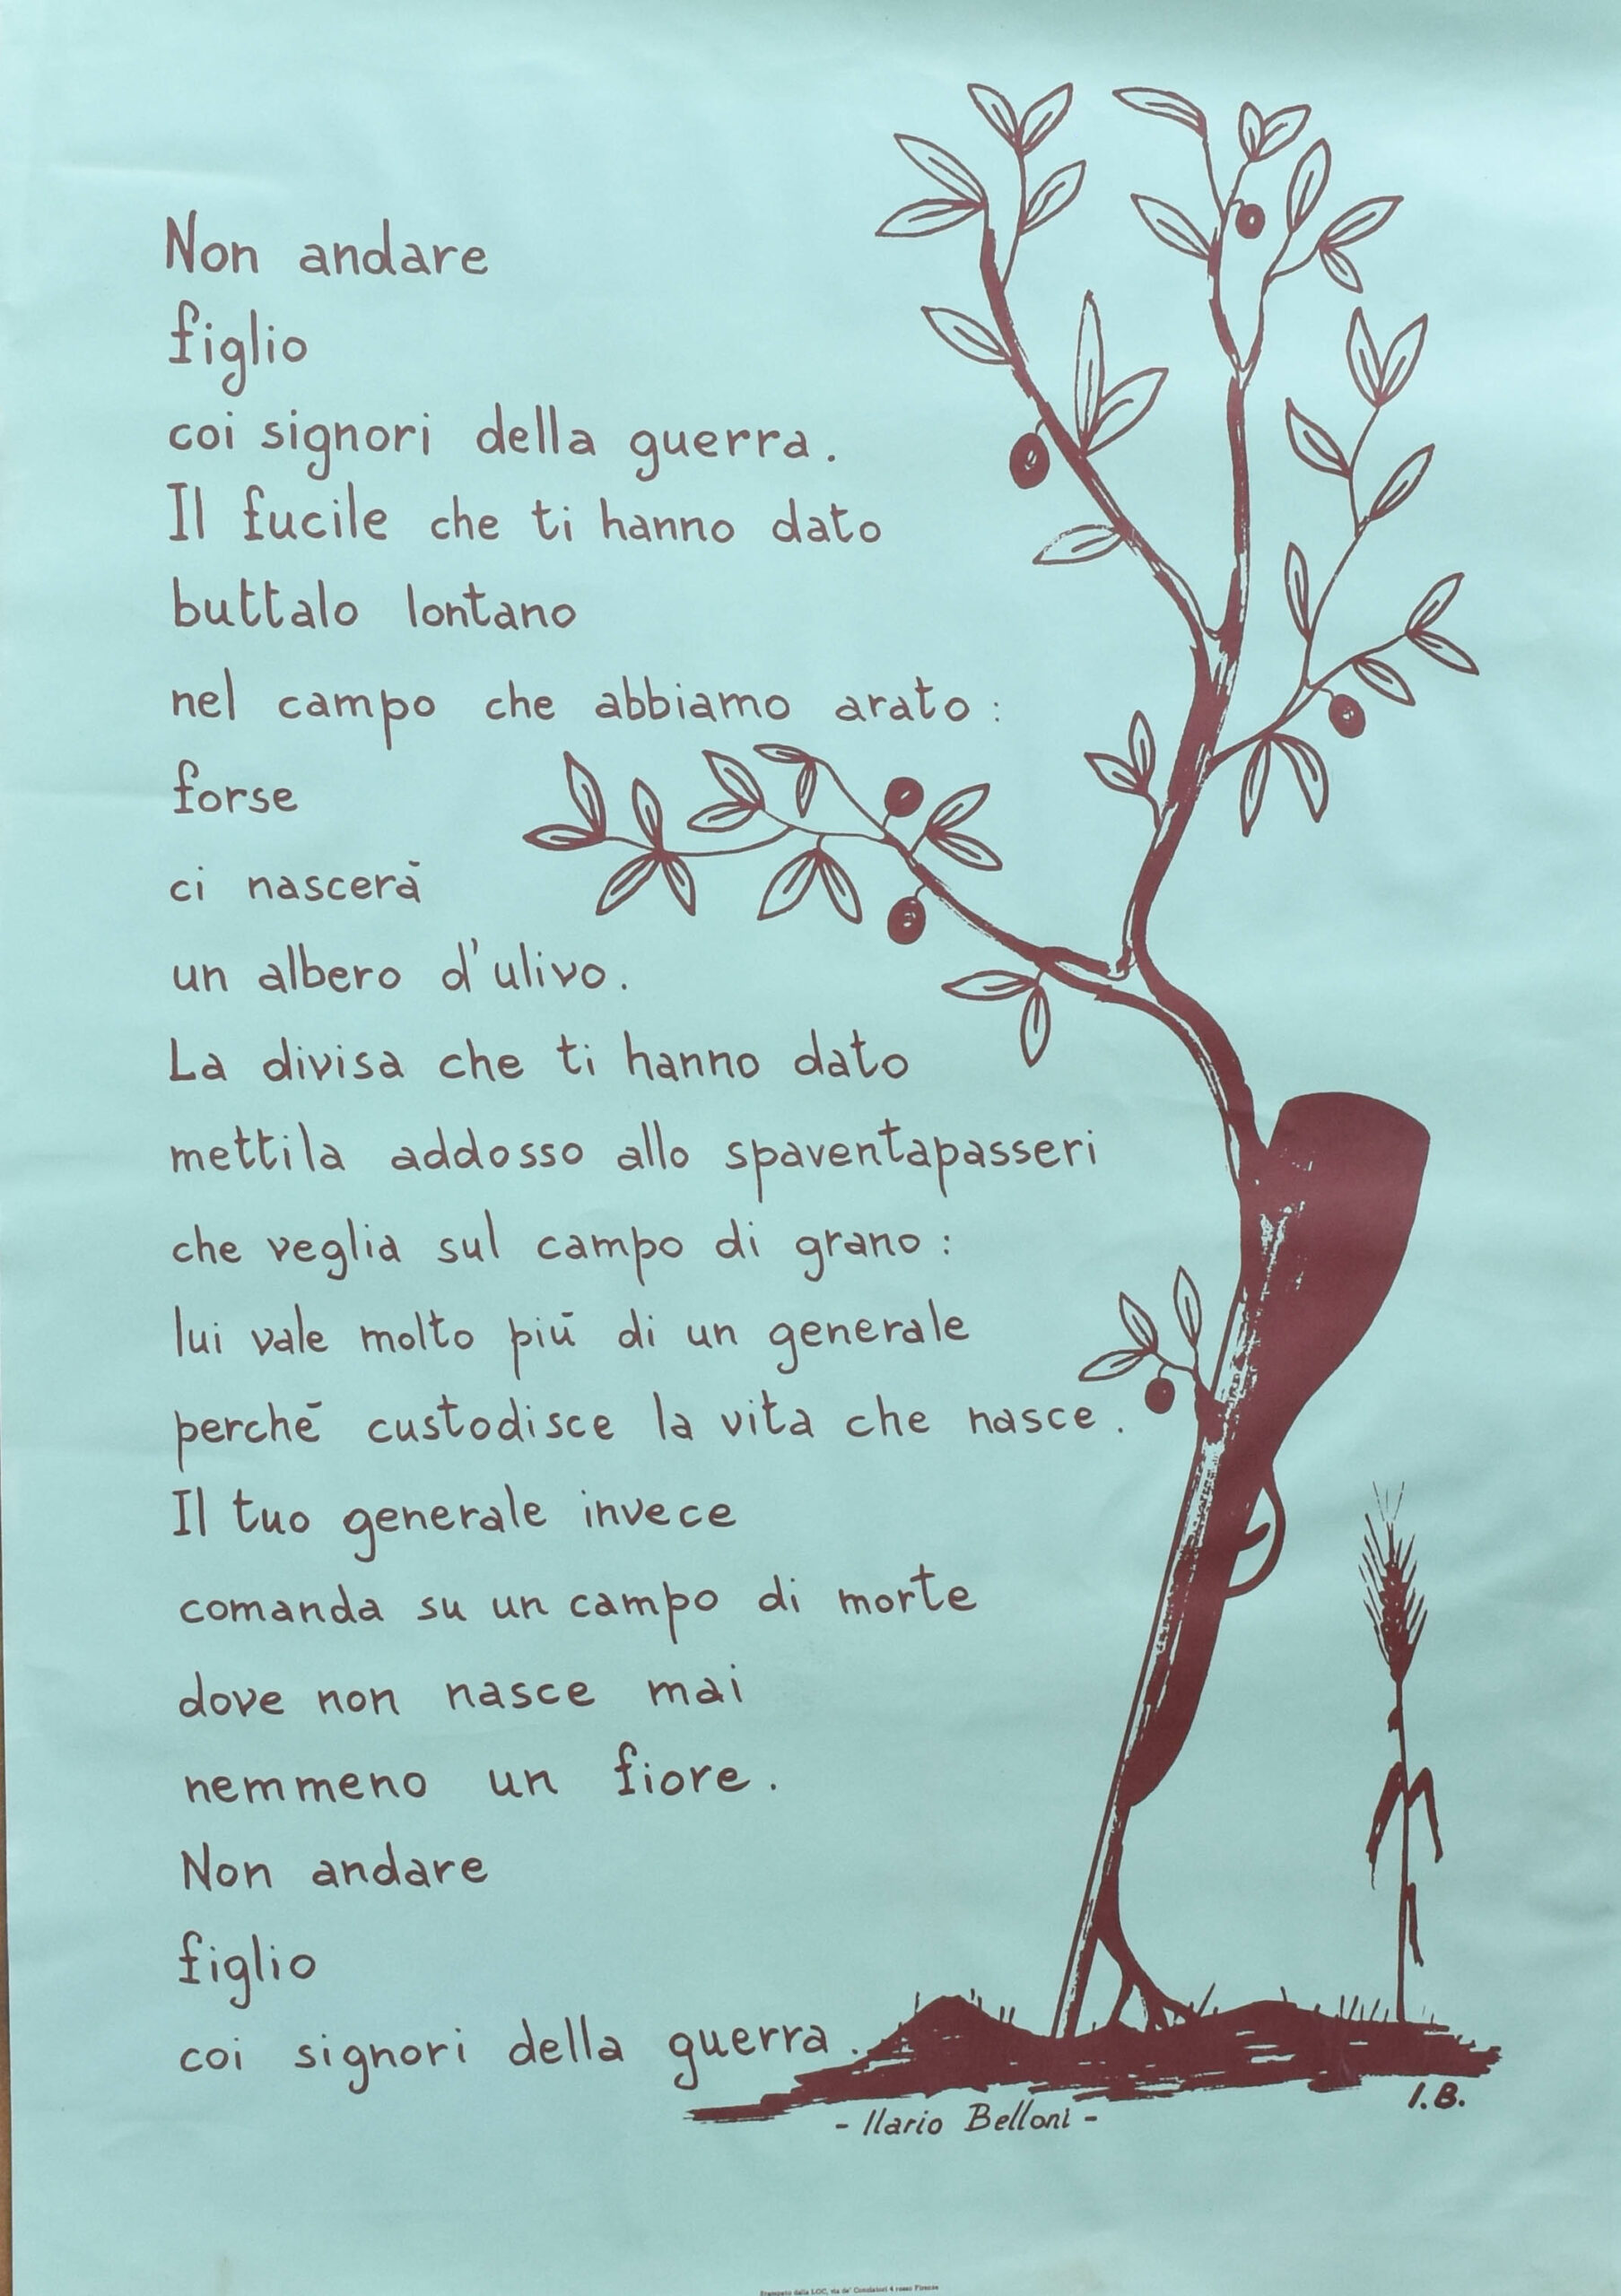 Non andare
figlio
coi signori della guerra.
Il fucile che ti hanno dato
buttalo lontano
nel campo che abbiamo arato:
forse
ci nascerà
un albero d'ulivo.
La divisa che ti hanno dato
mettila addosso allo spaventapasseri
che veglia sul campo di grano:
lui vale molto più di un generale
perché custodisce la vita che nasce.
Il tuo generale invece
comanda su un campo di morte
dove non nasce mai
nemmeno un fiore.
Non andare
figlio
coi signori della guerra.
I.B.
- Ilario Belloni -
Stampato dalla LOC, via de' Conciatori 4 rosso Firenze